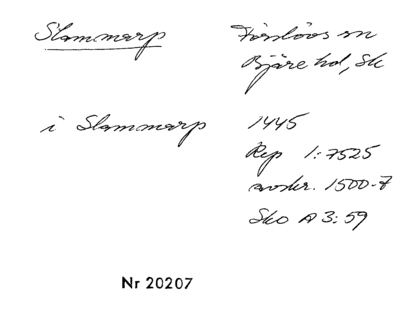 Slammarp
Förslövs sn
Bjäre hd, Sk
i Slammarp
1445
Rep 1:7525
avskr. 1500-t
Sko A 3:59
Nr 20207